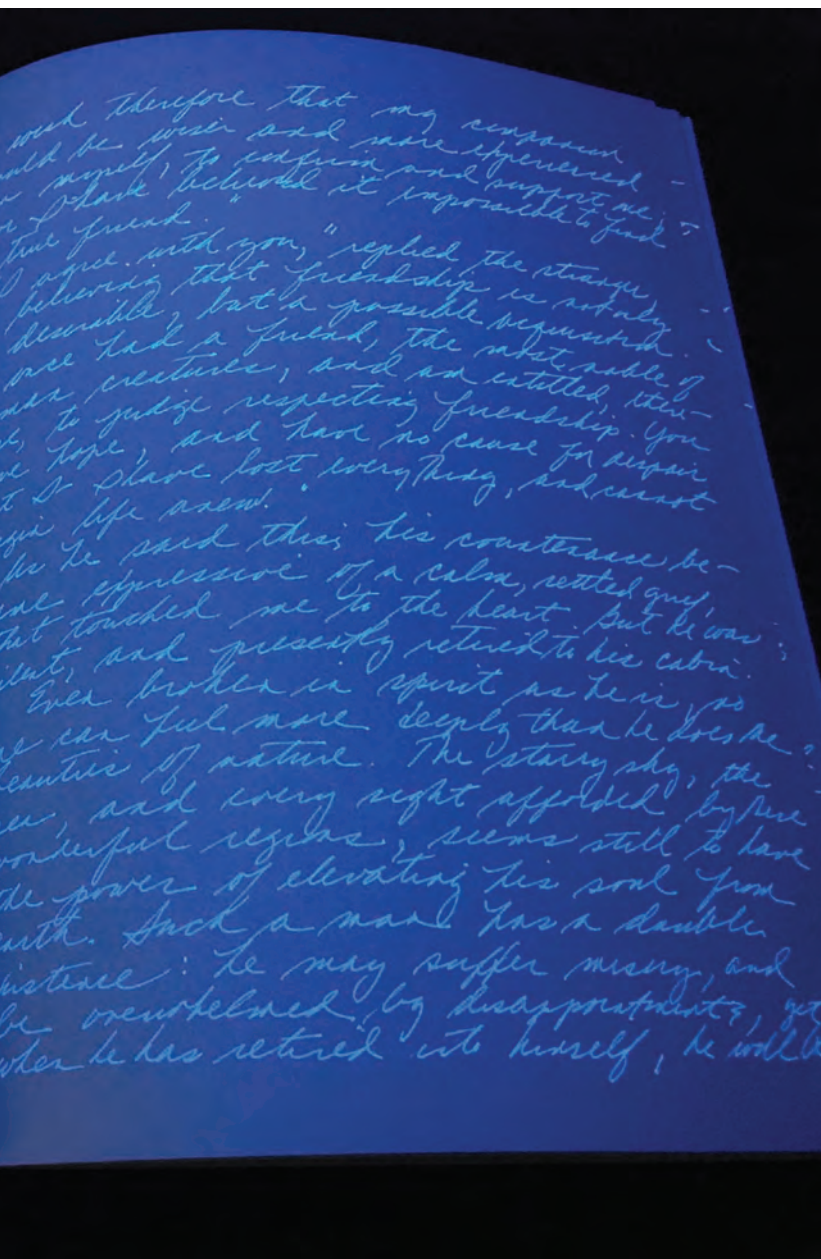 wish therefore that my companion
ould be wiser and more experienced
n myself, to confirm and support me;
or I have believed it impossible to find
true friend."
I agree with you," replied the stranger,
believing that friendship is not only
desirable, but a possible acquisition.
once had a friend, the most noble of
man creatures, and am entitled, there-
e, to judge respecting friendship. You
ve hope, and have no cause for despair
t I have lost everything, and cannot
egin life anew."
As he said this, his countenance be-
ame expressive of a calm, settled grief,
that touched me to the heart. But he was
ilent, and presently retired to his cabin.
Even broken in spirit as he is, no
ne can feel more deeply than he does the
eauties of nature. The starry sky, the
ea, and every sight afforded by these
wonderful regions, seems still to have
the power of elevating his soul from
earth. Such a man has a double
xistence: he may suffer misery, and
be overwhelmed by disappointments, yet
when he has retired into himself, he will b